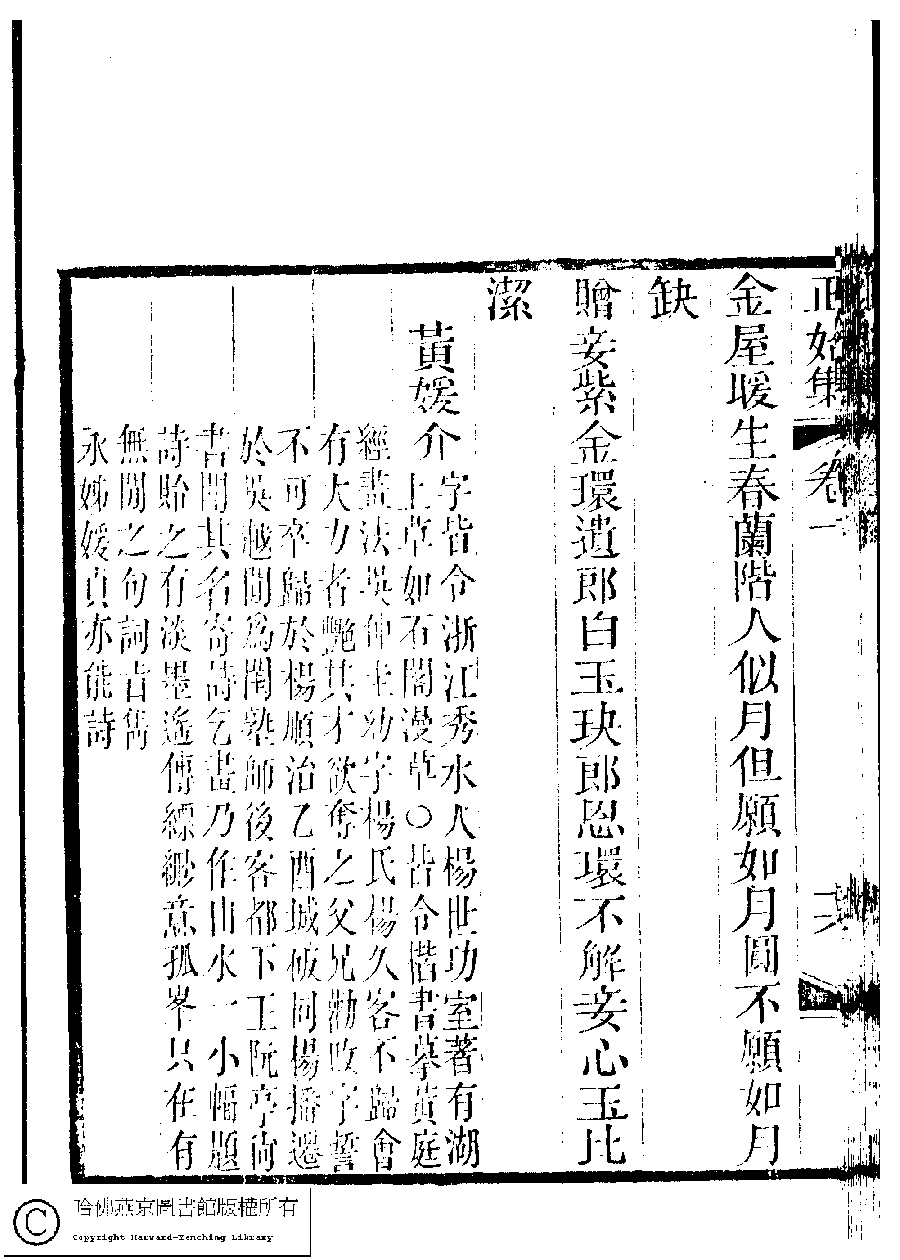 正始集 卷一
金屋暖生春蘭階人似月但願如月圓不願如月
缺
贈妾紫金環遺郎白玉玦郎恩環不解妾心玉比
潔
黃媛介
字皆令浙江秀水人楊世功室著有湖
上草如石閣漫草○皆令楷書摹黃庭
經畫法吳仲圭幼字楊氏楊久客不歸會
有大力者艷其才欲奪之父兄勸改字誓
不可卒歸於楊順治乙酉城破同楊播遷
於吳越間爲閨塾師後客都下王阮亭尚
書聞其名寄詩乞畫乃作山水一小幅題
詩貽之有淡墨遙傳縹緲意孤峯只在有
無間之句詞旨雋
永姊媛貞亦能詩
哈佛燕京圖書館版權所有
Copyright Harvard-Yenching Library